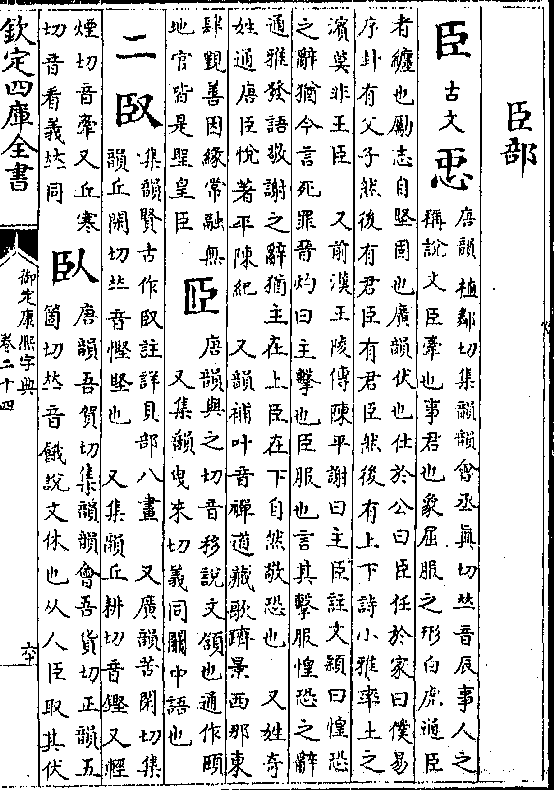 臣部
臣 古文 𢘑
唐韻植鄰切集韻韻會丞眞切𠀤音辰事人之
稱說文臣牽也事君也象屈服之形白虎通臣
者纏也勵志自堅固也廣韻伏也仕於公曰臣任於家曰僕易
序卦有父子然後有君臣有君臣然後有上下詩小雅率土之
濱莫非王臣 又前漢王陵傳陳平謝曰主臣註文穎曰惶恐
之辭猶今言死罪晉灼曰主擊也臣服也言其擊服惶恐之辭
通雅發語敬謝之辭猶主在上臣在下自然敬恐也 又姓奇
姓通唐臣悅著平陳紀 又韻補叶音禪道藏歌躋景西那東
肆觀善因緣常融無
地官皆是聖皇臣
𦣝
唐韻與之切音移說文頷也通作頤
又集韻曳來切義同關中語也
二 臤
集韻賢古作臤註詳貝部八畫 又廣韻苦閑切集
韻丘閑切𠀤音慳堅也 又集韻丘耕切音鏗又輕
煙切音牽又丘寒
切音看義𠀤同
臥
唐韻吾貨切集韻韻會吾貨切正韻五
箇切𠀤音餓說文休也从人臣取其伏
欽定四庫全書
御定康熙字典
卷二十四
六十